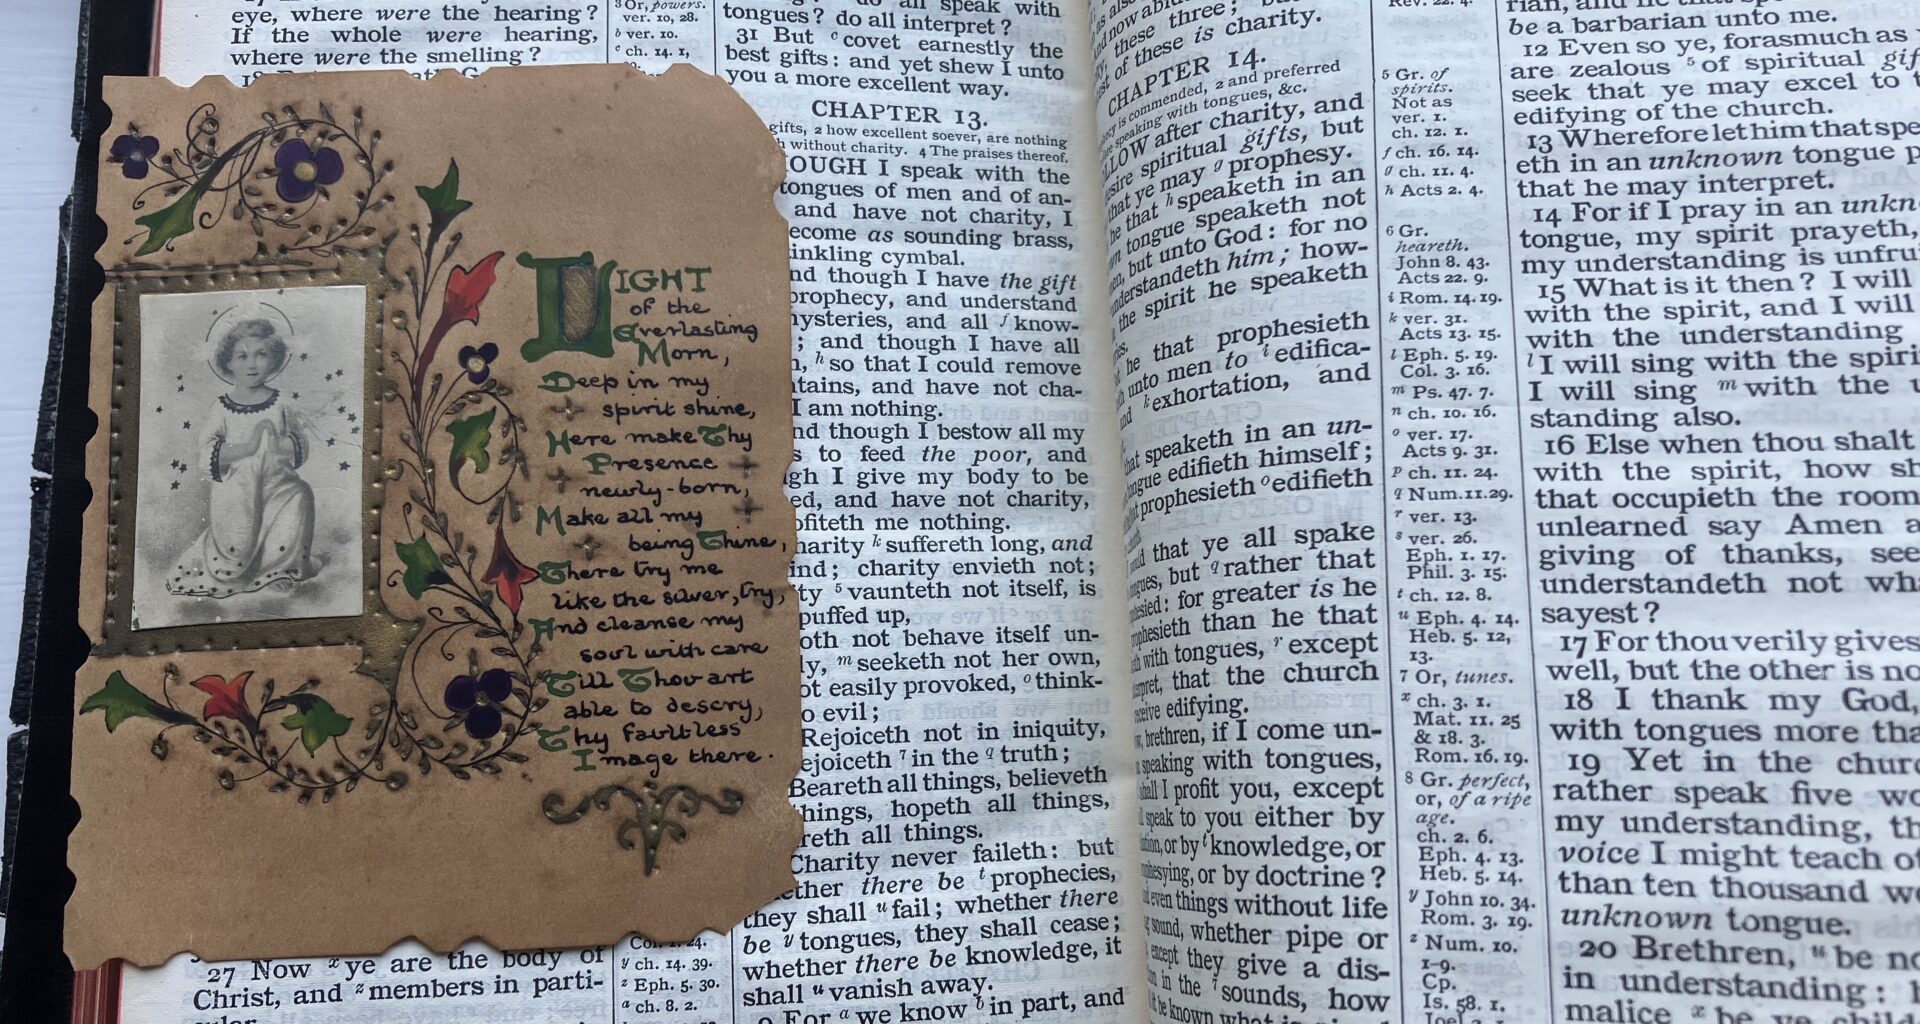 eye, where were the hearing?
If the whole were hearing,
where were the smelling?
27 Now x ye are the body of
Christ, and z members in parti-
3 Or, powers.
ver. 10, 28.
b ver. 10.
c ch. 14. 1,
y ch. 14. 39.
z Eph. 5. 30.
a ch. 8. 2.
LIGHT
of the
Everlasting
Morn,
Deep in my
spirit shine,
Here make Thy
Presence
newly-born,
Make all my
being Thine,
There try me
like the silver, try,
And cleanse my
soul with care
Till Thou art
able to descry,
Thy faultless
Image there.
all speak with
tongues? do all interpret?
31 But c covet earnestly the
best gifts: and yet shew I unto
you a more excellent way.
CHAPTER 13.
gifts, 2 how excellent soever, are nothing
without charity. 4 The praises thereof.
OUGH I speak with the
tongues of men and of an-
and have not charity, I
ecome as sounding brass,
inkling cymbal.
nd though I have the gift
prophecy, and understand
mysteries, and all f know-
; and though I have all
h so that I could remove
tains, and have not cha-
I am nothing.
nd though I bestow all my
s to feed the poor, and
gh I give my body to be
ed, and have not charity,
ofiteth me nothing.
harity k suffereth long, and
ind; charity envieth not;
ty 5 vaunteth not itself, is
puffed up,
oth not behave itself un-
ly, m seeketh not her own,
ot easily provoked, o think-
o evil;
Rejoiceth not in iniquity,
ejoiceth 7 in the q truth;
Beareth all things, believeth
things, hopeth all things,
reth all things.
Charity never faileth: but
ether there be t prophecies,
they shall u fail; whether there
be y tongues, they shall cease;
whether there be knowledge, it
shall u vanish away.
9 For a we know b in part, and
these three;
of these is charity.
CHAPTER 14.
is commended, 2 and preferred
speaking with tongues, &c.
LLOW after charity, and
desire spiritual gifts, but
that ye may g prophesy.
he that h speaketh in an
tongue speaketh not
men, but unto God: for no
understandeth him; how-
the spirit he speaketh
he that prophesieth
unto men to i edifica-
k exhortation, and
that speaketh in an un-
tongue edifieth himself;
prophesieth o edifieth
would that ye all spake
tongues, but q rather that
prophesied: for greater is he
prophesieth than he that
with tongues, r except
interpret, that the church
receive edifying.
brethren, if I come un-
speaking with tongues,
shall I profit you, except
speak to you either by
or by t knowledge, or
prophesying, or by doctrine?
even things without life
sound, whether pipe or
except they give a dis-
in the 7 sounds, how
it be known what is
Rev. 22. 4.
5 Gr. of
spirits.
Not as
ver. 1.
ch. 12. 1.
f ch. 16. 14.
g ch. 11. 4.
h Acts 2. 4.
6 Gr.
heareth.
John 8. 43.
Acts 22. 9.
i Rom. 14. 19.
k ver. 31.
Acts 13. 15.
l Eph. 5. 19.
Col. 3. 16.
m Ps. 47. 7.
n ch. 10. 16.
o ver. 17.
Acts 9. 31.
p ch. 11. 24.
q Num. 11. 29.
r ver. 13.
s ver. 26.
Eph. 1. 17.
Phil. 3. 15.
t ch. 12. 8.
u Eph. 4. 14.
Heb. 5. 12,
13.
7 Or, tunes.
x ch. 3. 1.
Mat. 11. 25
& 18. 3.
Rom. 16. 19.
8 Gr. perfect,
or, of a ripe
age.
ch. 2. 6.
Eph. 4. 13.
Heb. 5. 14.
y John 10. 34.
Rom. 3. 19.
z Num. 10.
1-9.
Cp.
Is. 58. 1.
be a barbarian unto me.
12 Even so ye, forasmuch as
are zealous 5 of spiritual gif
seek that ye may excel to
edifying of the church.
13 Wherefore let him that spe
eth in an unknown tongue p
that he may interpret.
14 For if I pray in an unkn
tongue, my spirit prayeth,
my understanding is unfru
15 What is it then? I will
with the spirit, and I will
with the understanding
l I will sing with the spiri
I will sing m with the u
standing also.
16 Else when thou shalt
with the spirit, how sh
that occupieth the room
unlearned say Amen a
giving of thanks, see
understandeth not wha
sayest?
17 For thou verily gives
well, but the other is no
18 I thank my God,
with tongues more tha
19 Yet in the churc
rather speak five wo
my understanding, th
voice I might teach ot
than ten thousand wo
unknown tongue.
20 Brethren, u be no
in understanding: h
malice x be ye child